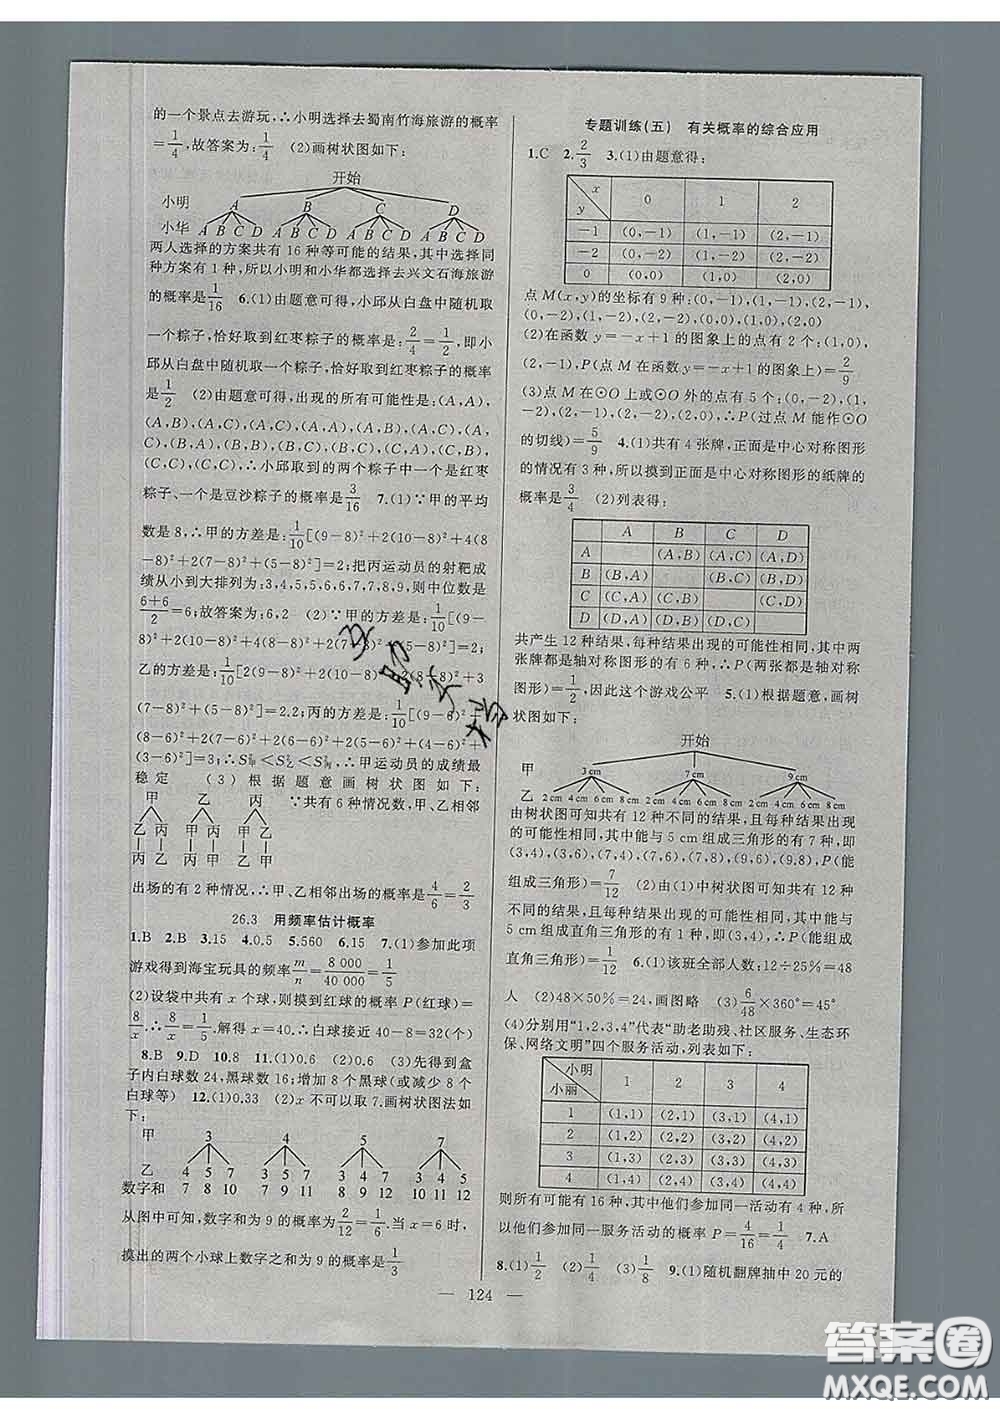 的一个景点去游玩,∴小明选择去蜀南竹海旅游的概率
1/4,故答案为:1/4 (2)画树状图如下:
开始
小明 A B C D
小华 A B C D A B C D A B C D A B C D
两人选择的方案共有 16 种等可能的结果,其中选择同
种方案有 1 种,所以小明和小华都选择去兴文石海旅游
的概率是1/16 6.(1)由题意可得,小邱从白盘中随机取
一个粽子,恰好取到红枣粽子的概率是:2/4=1/2,即小
邱从白盘中随机取一个粽子,恰好取到红枣粽子的概率
是1/2 (2)由题意可得,出现的所有可能性是:(A,A),
(A,B),(A,C),(A,C),(A,A),(A,B),(A,C),(A,
C),(B,A),(B,B),(B,C),(B,C),(C,A),(C,B),
(C,C),(C,C),∴小邱取到的两个粽子中一个是红枣
粽子、一个是豆沙粽子的概率是3/16 7.(1)∵甲的平均
数是8,∴甲的方差是:1/10[(9-8)²+2(10-8)²+4(8
-8)²+2(7-8)²+(5-8)²]=2;把丙运动员的射靶成
绩从小到大排列为:3,4,5,5,6,6,7,7,8,9,则中位数是
6+6/2=6;故答案为:6,2 (2)∵甲的方差是:1/10[(9-
8)²+2(10-8)²+4(8-8)²+2(7-8)²+(5-8)²]=2;
乙的方差是:1/10[2(9-8)²+2(10-8)²+2(8-8)²+3
(7-8)²+(5-8)²]=2.2;丙的方差是:1/10[(9-6)²+
(8-6)²+2(7-6)²+2(6-6)²+2(5-6)²+(4-6)²+
(3-6)²]=3;∴S²甲<S²乙<S²丙,∴甲运动员的成绩最
稳定 (3)根据题意画树状图如下:
甲 乙 丙 ∵共有 6 种情况数,甲、乙相邻
乙 丙 甲 丙 甲 乙
丙 乙 丙 甲 乙 甲
出场的有 2 种情况,∴甲、乙相邻出场的概率是4/6=2/3
26.3 用频率估计概率
1.B 2.B 3.15 4.0.5 5.560 6.15 7.(1)参加此项
游戏得到海宝玩具的频率m/n=8 000/40 000=1/5
(2)设袋中共有 x 个球,则摸到红球的概率 P(红球)=
8/x.∴8/x=1/5.解得 x=40.∴白球接近 40-8=32(个)
8.B 9.D 10.8 11.(1)0.6 (2)0.6 (3)先得到盒
子内白球数 24,黑球数 16;增加 8 个黑球(或减少 8 个
白球等) 12.(1)0.33 (2)x 不可以取 7.画树状图法如
下:
甲 3 4 5 7
乙 4 5 7 3 5 7 3 4 7 3 4 5
数字和 7 8 10 7 9 11 8 9 12 10 11 12
从图中可知,数字和为 9 的概率为2/12=1/6.当 x=6 时,
摸出的两个小球上数字之和为 9 的概率是1/3
专题训练(五) 有关概率的综合应用
1.C 2.2/3 3.(1)由题意得:
x y 0 1 2
-1 (0,-1) (1,-1) (2,-1)
-2 (0,-2) (1,-2) (2,-2)
0 (0,0) (1,0) (2,0)
点 M(x,y)的坐标有 9 种:(0,-1),(1,-1),(2,-1),
(0,-2),(1,-2),(2,-2),(0,0),(1,0),(2,0)
(2)在函数 y=-x+1 的图象上的点有 2 个:(1,0),
(2,-1),P(点 M 在函数 y=-x+1 的图象上)=2/9
(3)点 M 在⊙O 上或⊙O 外的点有 5 个:(0,-2),(1,
-2),(2,-1),(2,-2),(2,0),∴P(过点 M 能作⊙O
的切线)=5/9 4.(1)共有 4 张牌,正面是中心对称图形
的情况有 3 种,所以摸到正面是中心对称图形的纸牌的
概率是3/4 (2)列表得:
A B C D
A (A,B) (A,C) (A,D)
B (B,A) (B,C) (B,D)
C (C,A) (C,B) (C,D)
D (D,A) (D,B) (D,C)
共产生 12 种结果,每种结果出现的可能性相同,其中两
张牌都是轴对称图形的有 6 种,∴P(两张都是轴对称
图形)=1/2,因此这个游戏公平 5.(1)根据题意,画树
状图如下:
开始
甲 3 cm 7 cm 9 cm
乙 2 cm 4 cm 6 cm 8 cm 2 cm 4 cm 6 cm 8 cm 2 cm 4 cm 6 cm 8 cm
由树状图可知共有 12 种不同的结果,且每种结果出现
的可能性相同,其中能与 5 cm 组成三角形的有 7 种,即
(3,4),(3,6),(7,4),(7,6),(7,8),(9,6),(9,8),P(能
组成三角形)=7/12 (2)由(1)中树状图可知共有 12 种
不同的结果,且每种结果出现的可能性相同,其中能与
5 cm 组成直角三角形的有 1 种,即(3,4),∴P(能组成
直角三角形)=1/12 6.(1)该班全部人数:12÷25%=48
人 (2)48×50%=24,画图略 (3)6/48×360°=45°
(4)分别用“1,2,3,4”代表“助老助残、社区服务、生态环
保、网络文明”四个服务活动,列表如下:
小明 小丽 1 2 3 4
1 (1,1) (2,1) (3,1) (4,1)
2 (1,2) (2,2) (3,2) (4,2)
3 (1,3) (2,3) (3,3) (4,3)
4 (1,4) (2,4) (3,4) (4,4)
则所有可能有 16 种,其中他们参加同一活动有 4 种,所
以他们参加同一服务活动的概率 P=4/16=1/4 7.A
8.(1)1/2 (2)1/4 (3)1/8 9.(1)随机翻牌抽中 20 元的
— 124 —
答案圈
MXQE.COM